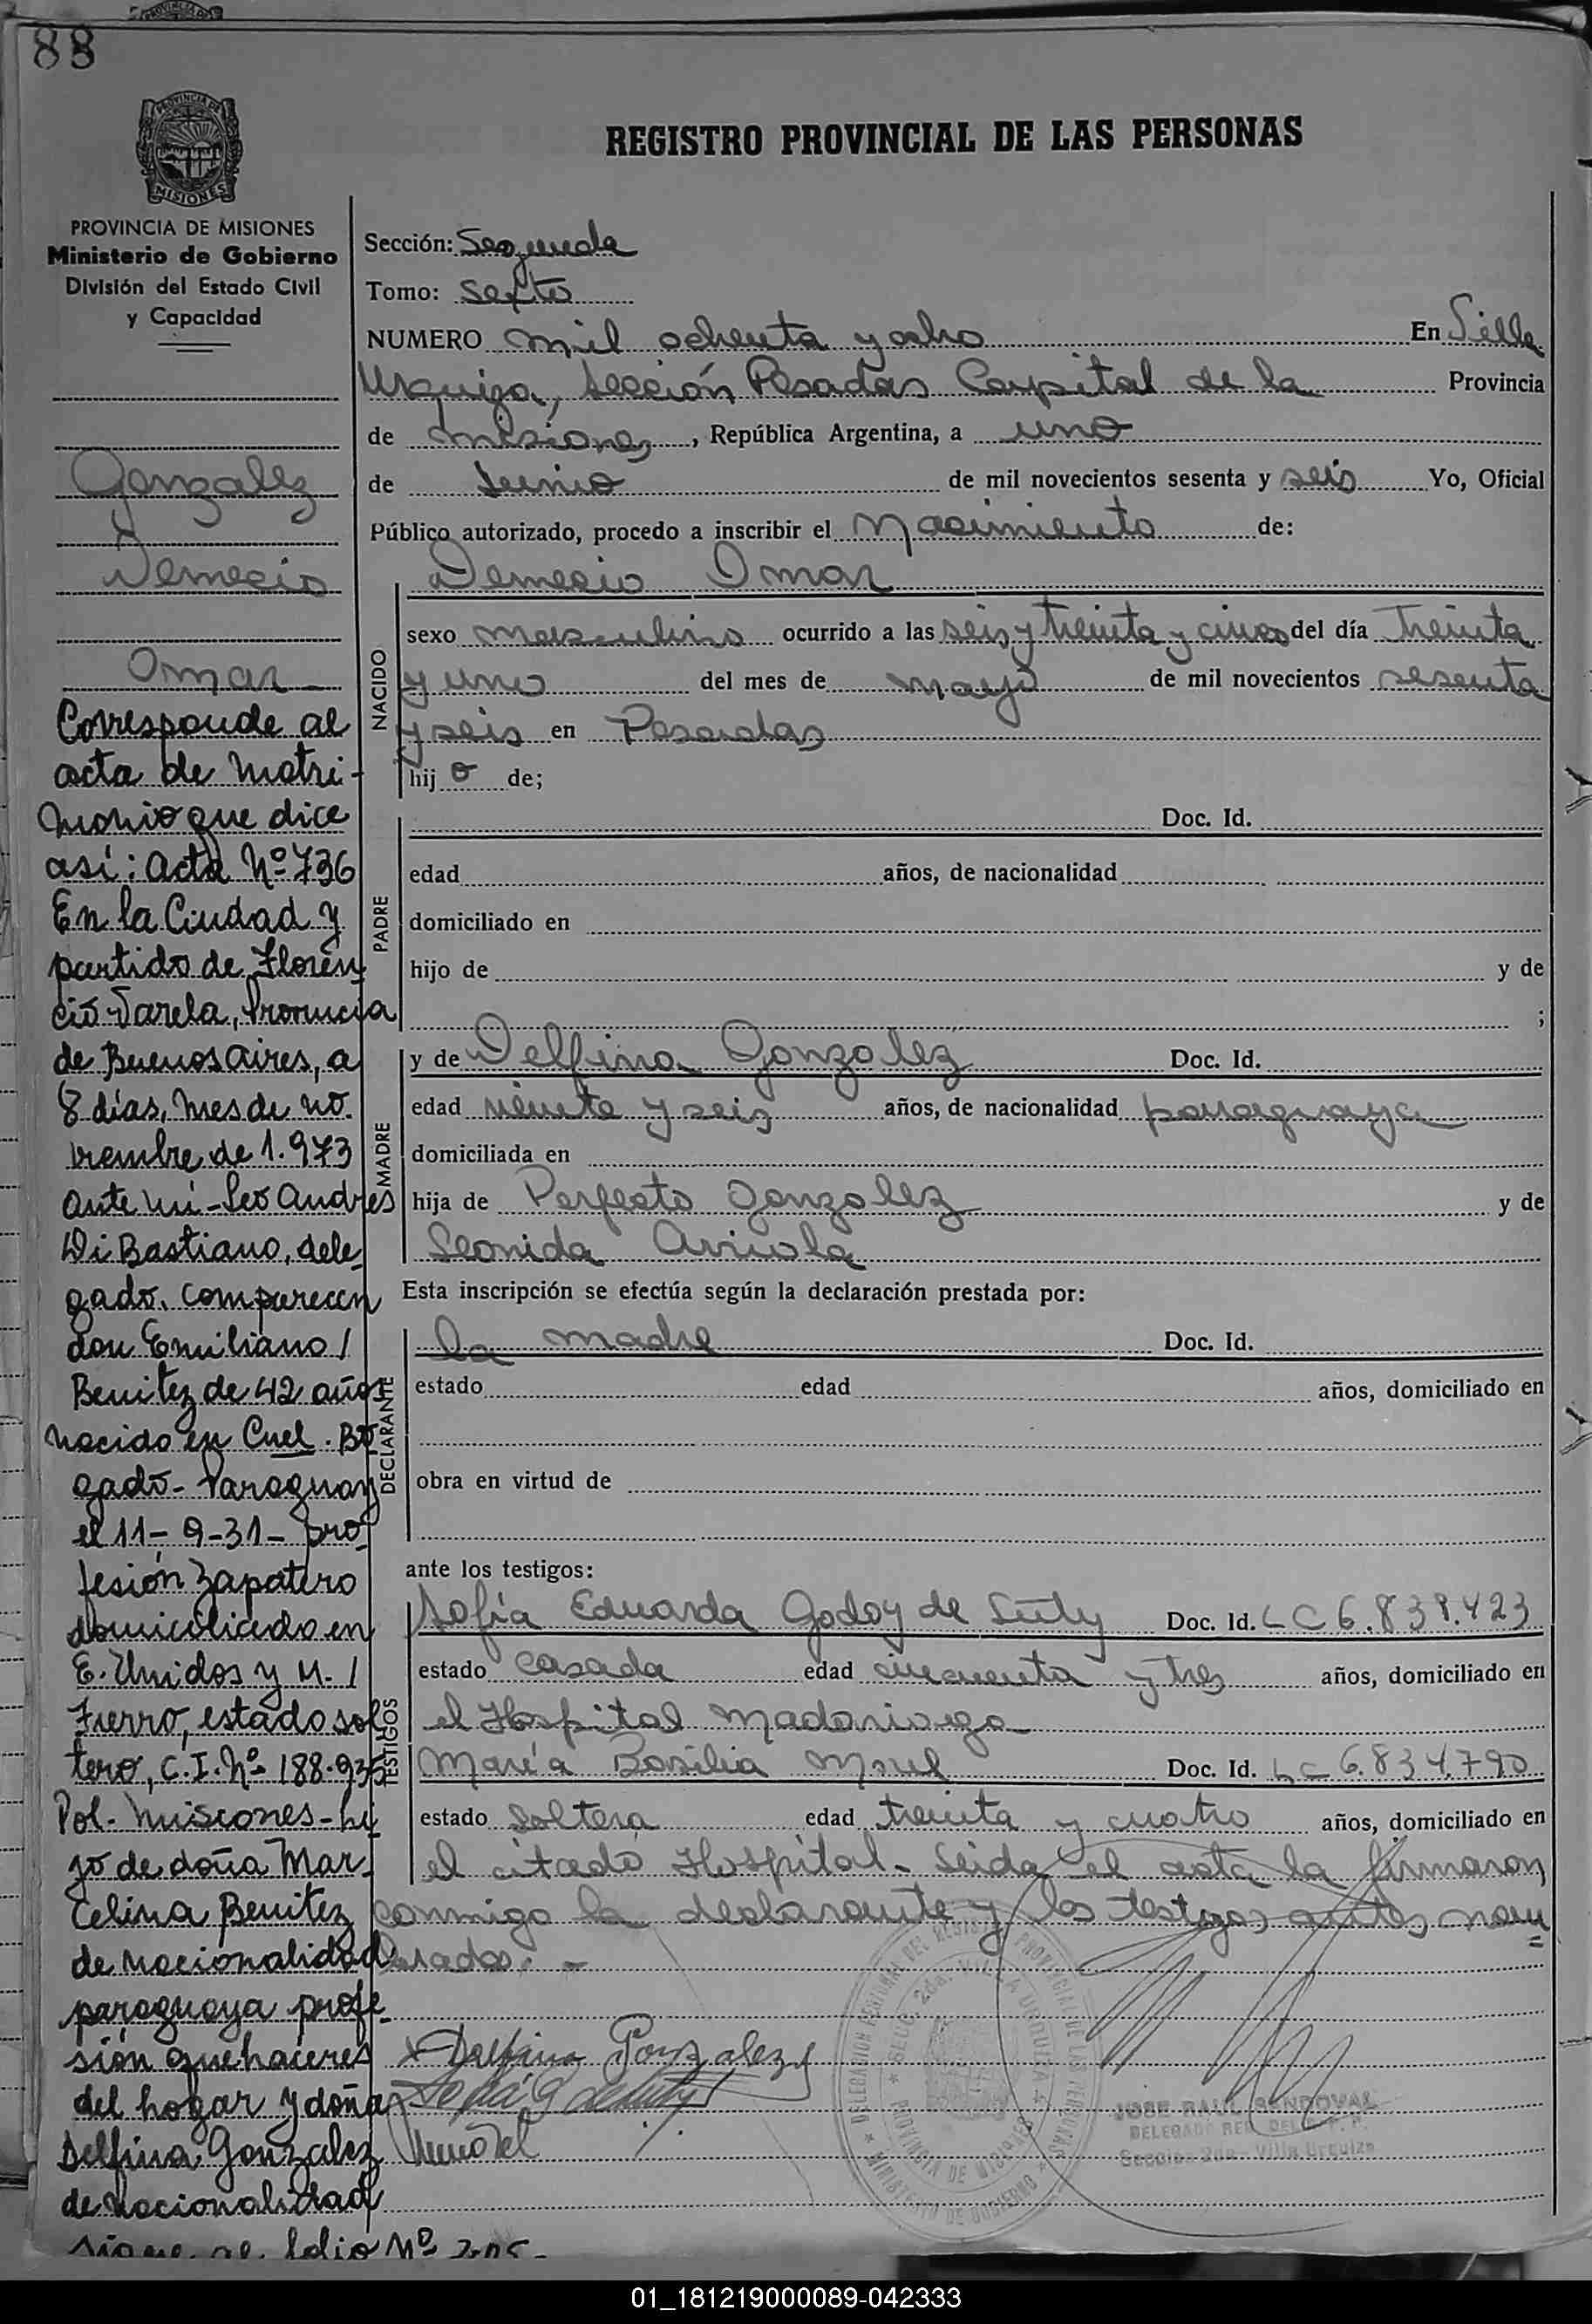 88
REGISTRO PROVINCIAL DE LAS PERSONAS
MISIONES
PROVINCIA DE MISIONES
Ministerio de Gobierno
División del Estado Civil
y Capacidad
Gonzalez
Demecio
Omar
Corresponde al
acta de matri-
monio que dice
así: Acta Nº 736
En la Ciudad y
partido de Floren
cio Varela, Provincia
de Buenos Aires, a
8 días, mes de no-
viembre de 1.973
Ante mí - Leo Andres
Di Bastiano, dele-
gado. Comparecen
don Emiliano /
Benitez de 42 años
nacido en Cnel. Bo
gado - Paraguay
el 11-9-31- pro-
fesión zapatero
domiciliado en
E. Unidos y M. /
Fierro, estado sol-
tero, C.I. Nº 188.935
Pol. Misiones - hi-
jo de doña Mar-
celina Benitez
de nacionalidad
paraguaya profe-
sión quehaceres
del hogar y doña
Delfina Gonzalez
de nacionalidad
sigue al folio Nº
Sección: Segunda
Tomo: Sexto
NUMERO mil ochenta y ocho En Villa
Urquiza, Sección Posadas Capital de la Provincia
de Misiones, República Argentina, a uno
de Junio de mil novecientos sesenta y seis Yo, Oficial
Público autorizado, procedo a inscribir el Nacimiento de:
Demecio Omar
NACIDO
sexo masculino ocurrido a las seis y treinta y cinco del día treinta
y uno del mes de mayo de mil novecientos sesenta
y seis en Posadas
hij o de;
PADRE
Doc. Id.
edad años, de nacionalidad
domiciliado en
hijo de y de
;
MADRE
y de Delfina Gonzalez Doc. Id.
edad veinte y seis años, de nacionalidad paraguaya
domiciliada en
hija de Perfecto Gonzalez y de
Leonida
Esta inscripción se efectúa según la declaración prestada por:
DECLARANTE
la madre Doc. Id.
estado edad años, domiciliado en
obra en virtud de
ante los testigos:
TESTIGOS
Sofía Eduarda Godoy de Doc. Id. LC 6.838.423
estado casada edad cincuenta y tres años, domiciliado en
el Hospital Madariaga
María Basilia Doc. Id. LC 6.834.790
estado soltera edad treinta y cuatro años, domiciliado en
el citado Hospital. Leida el acta la firmaron
conmigo la declarante y los testigos antes nom
brados. -
Delfina Gonzalez
JOSE RAUL SANDOVAL
Sección 2da - Villa Urquiza
01_181219000089-042333